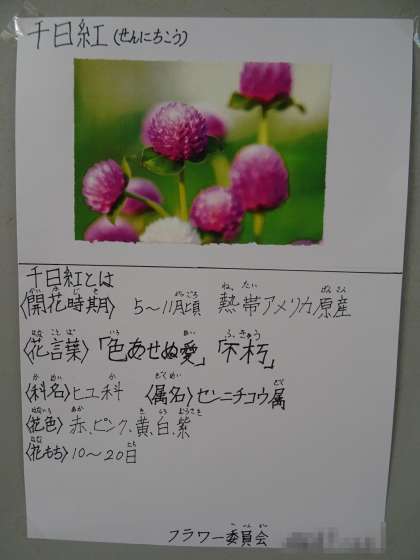 千日紅(せんにちこう)
千日紅とは
〈開花時期〉 5～11月頃 熱帯アメリカ原産
〈花言葉〉「色あせぬ愛」「不朽」
〈科名〉ヒユ科 〈属名〉センニチコウ属
〈花色〉赤、ピンク、黄、白、紫
〈花もち〉10～20日
フラワー委員会